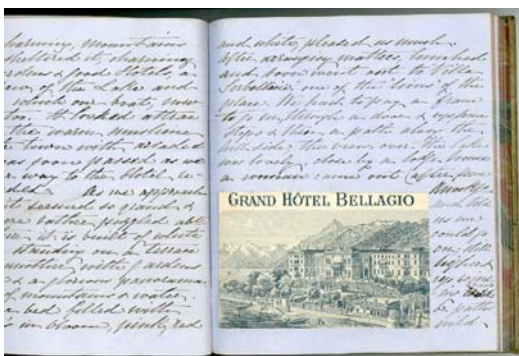 charming, mountains
sheltered it, charming
good Hotels, a
view of the Lake and
which our boat,
too. It looked
the warm sunshine
town with arcaded
as soon passed as we
way to the Hotel
As we approach
it seemed so grand &
rather puzzled
it is built of white
standing on a terrace
another with gardens
& a glorious panorama
of mountains & water.
bed filled with
in bloom, pink, red
and white, pleased us much.
After arranging matters lunched
and soon went out to Villa
Serbelloni one of the "lions" of the
place. We had to pay a franc
to go in, through a door &
steps & then a path along the
hillside the view over the Lake
was lovely, close by a house
a woman came out
and told
us we
could go
on, little
higher &
we
path
GRAND HÔTEL BELLAGIO